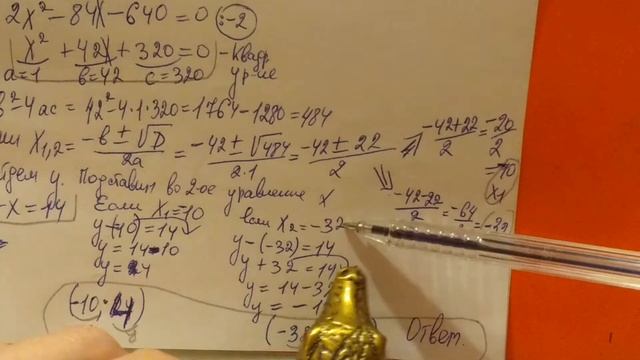 2x² - 84x - 640 = 0 :-2
x² + 42x + 320 = 0 - квад. ур-ие
a=1 b=42 c=320
b²-4ac = 42²-4·1·320 = 1764-1280 = 484
x₁,₂ = (-b ± √D)/2a = (-42 ± √484)/(2·1) = (-42 ± 22)/2
(-42+22)/2 = -20/2 = -10 x₁
(-42-22)/2 = -64/ = -32
у. Подставим во 2-ое уравнение x
-x = 14
Если x₁ = -10
y+10 = 14
y = 14-10
y = 4
если x₂ = -32
y-(-32) = 14
y + 32 = 14
y = 14-3
y = -1
(-10;
Ответ.